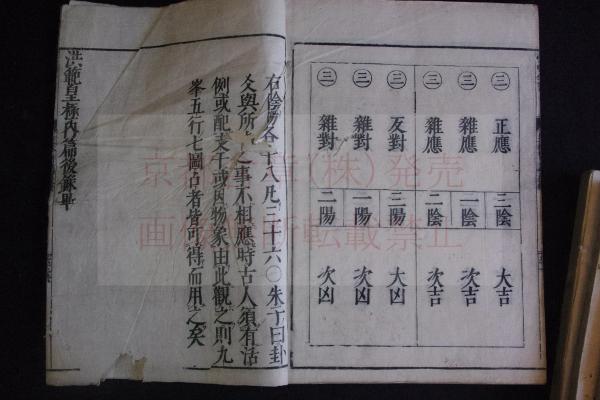 ㊂ 正應 三陰 大吉
㊂ 雜應 一陰 次吉
㊂ 雜應 二陰 次吉
㊂ 反對 三陽 大凶
㊂ 雜對 一陽 次凶
㊂ 雜對 二陽 次凶
右陰陽各十八凡三十六〇朱子曰卦
爻與所之事不相應時古人須有活
例或配支干或因物象由此觀之則九
峯五行七圖占者皆可得而用之矣
洪範皇極內篇後錄畢
(株)発売
画像 転載禁止